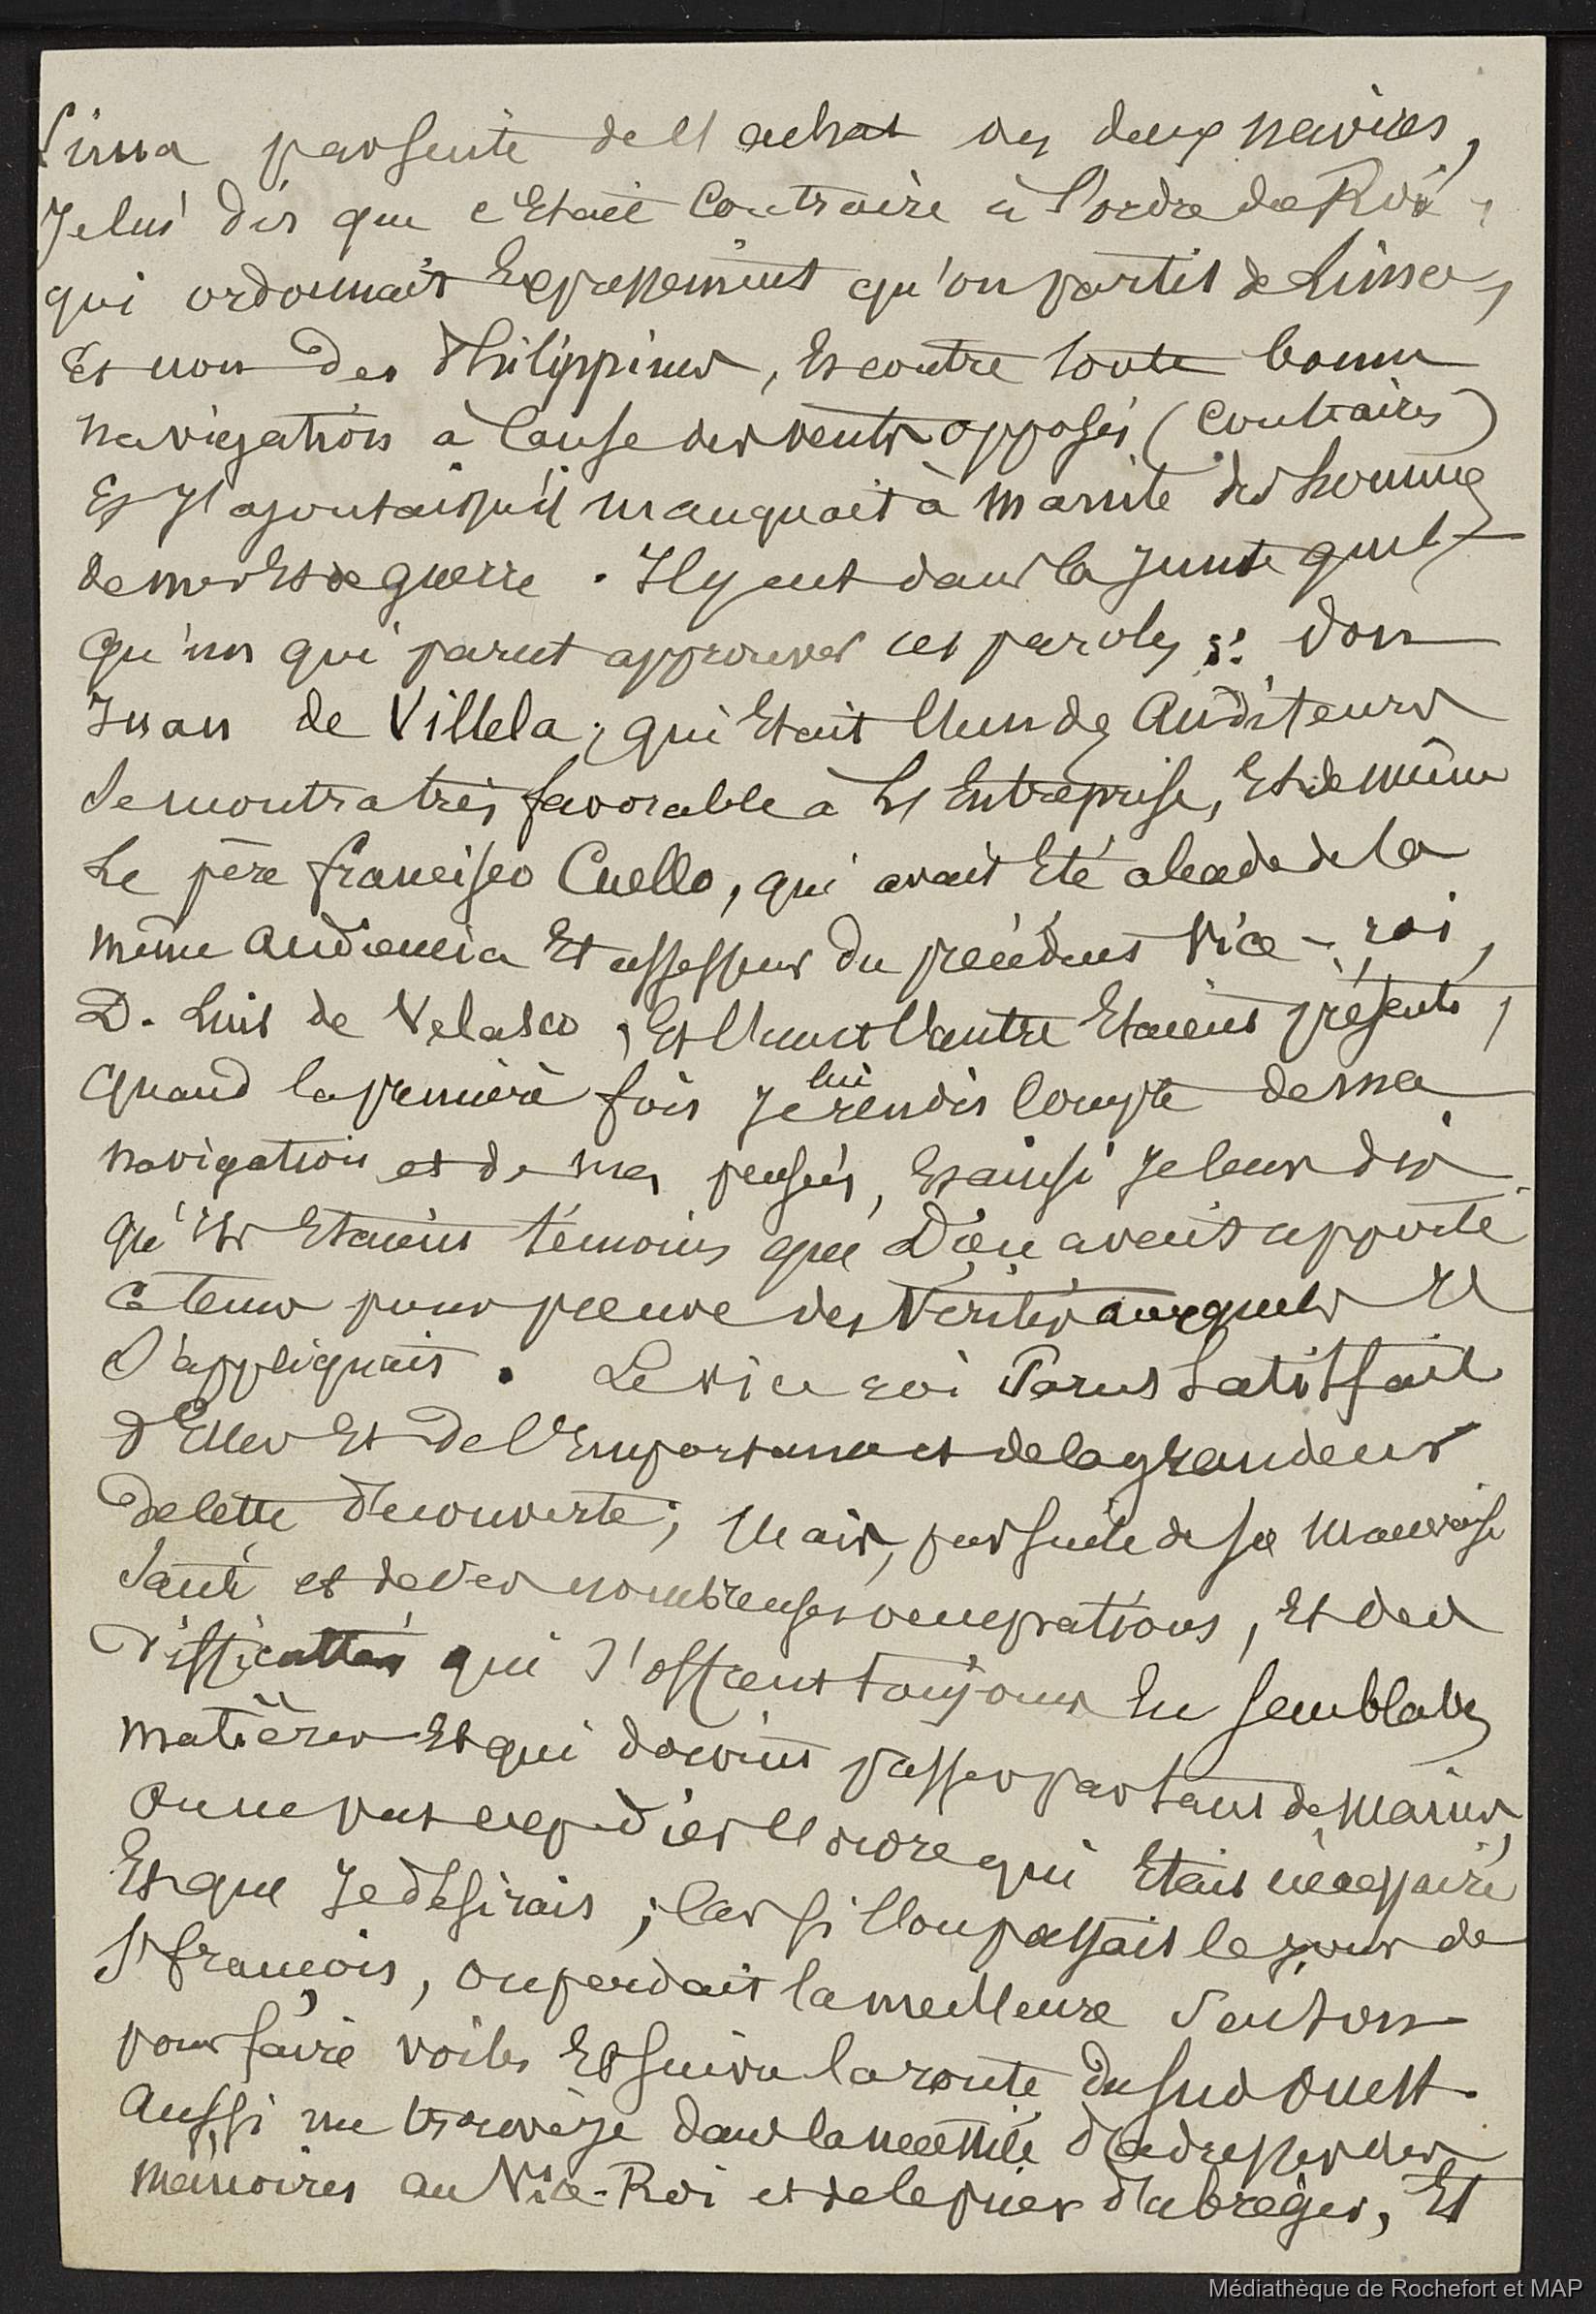 Lima par suite de l'achat des deux navires,
Je lui dis que c'Etait Contraire à l'ordre de Roi,
qui ordonnait Expressement qu'on partit de Lima,
Et non des Philippines, Et contre toute bonne
navigation à Cause des vents opposés (Contraires)
Et J'ajoutais qu'il manquait à Manile des hommes
de mer Et de guerre. Il y eut dans la Junte quel-
qu'un qui parut approuver ces paroles : Don
Juan de Villela, qui Etait l'un des Auditeurs
Se montra très favorable à l'Entreprise, Et de même
Le père Francisco Cuello, qui avait Eté alcade de la
même Audiencia Et assesseur du précédent Vice-roi,
D. Luis de Velasco, Et l'un et l'autre Etaient présents,
Quand la première fois Je lui rendis Compte de ma
navigation et de mes pensées, Et ainsi Je leur dis
qu'ils Etaient témoins que Dieu avait apporté
ce tems pour preuve des Vérités auxquels Il
s'appliquait. Le vice roi Parut Satisfait
d'Elles Et de l'Importance et de la grandeur
de cette découverte; Mais, par suite de sa Mauvaise
Santé et de ses nombreuses occupations, Et des
difficultés qui s'offrent toujours En semblables
matières Et qui doivent passer par tant de mains,
On ne put expédier l'ordre qui Etait nécessaire
Et que Je désirais; Car si l'on passait le jour de
St François, on perdait la meilleure Saison
pour faire voiles Et suivre la route du Sud Ouest.
Aussi me trouvai-je dans la nécessité d'adresser des
mémoires au Vice-Roi et de le prier d'abréger, Et
Médiathèque de Rochefort et MAP